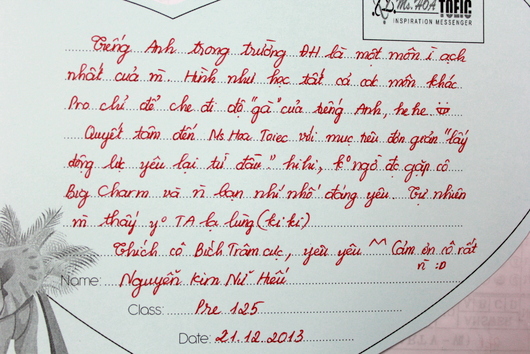 Ms. HOA TOEIC
INSPIRATION MESSENGER
Tiếng Anh trong trường ĐH là một môn ì ạch
nhất của m. Hình như học tất cả các môn khác
Pro chỉ để che đi độ "gà" của tiếng Anh, hehe
Quyết tâm đến Ms Hoa Toiec với mục tiêu đơn giản "lấy
động lực yêu lại từ đầu". hihi, ko ngờ đc gặp cô
Big Charm và n bạn nhí nhố đáng yêu. Tự nhiên
m thấy yo TA lạ lùng (kiki)
Thích cô Bích Trâm cực, yêu yêu ^^ Cảm ơn cô rất
n` :D
Name: Nguyễn Kim Nữ Hiếu
Class: Pre 125
Date: 21.12.2013